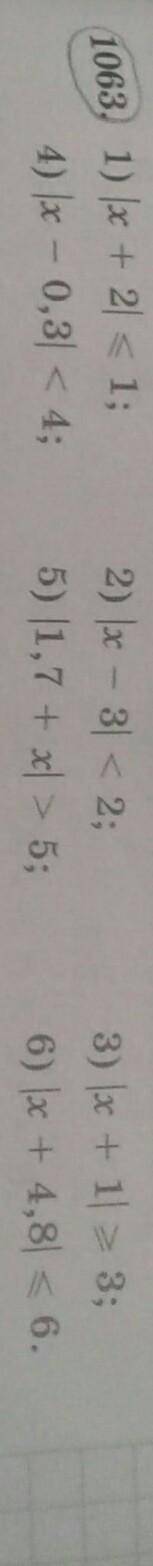 1063. 1) |x + 2| ⩽ 1; 2) |x − 3| < 2; 3) |x + 1| ⩾ 3;
4) |x − 0,3| < 4; 5) |1,7 + x| > 5; 6) |x + 4,8| ⩽ 6.